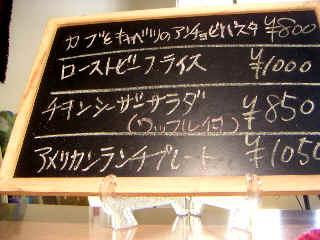 カブとキャベツのアンチョビパスタ ¥800
ローストビーフライス ¥1000
チキンシーザーサラダ ¥850
(ワッフル付)
アメリカンランチプレート ¥1050